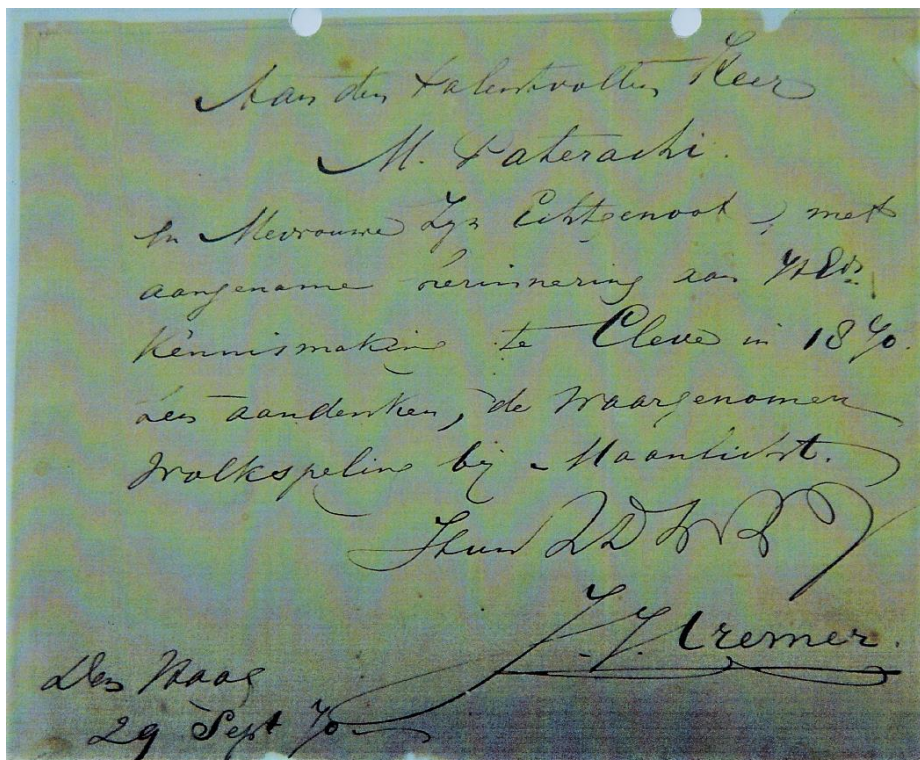 Aan den talentvollen Heer
M. Paterachi.
En Mevrouwe Zyn Echtgenoot, met
aangename herinnering aan
Kennismaking te Cleve in 1870.
Een aandenken, de waargenomen
Wolkspeling bij Maanlicht.
J. J. Cremer.
Den Haag
29 Sept 70